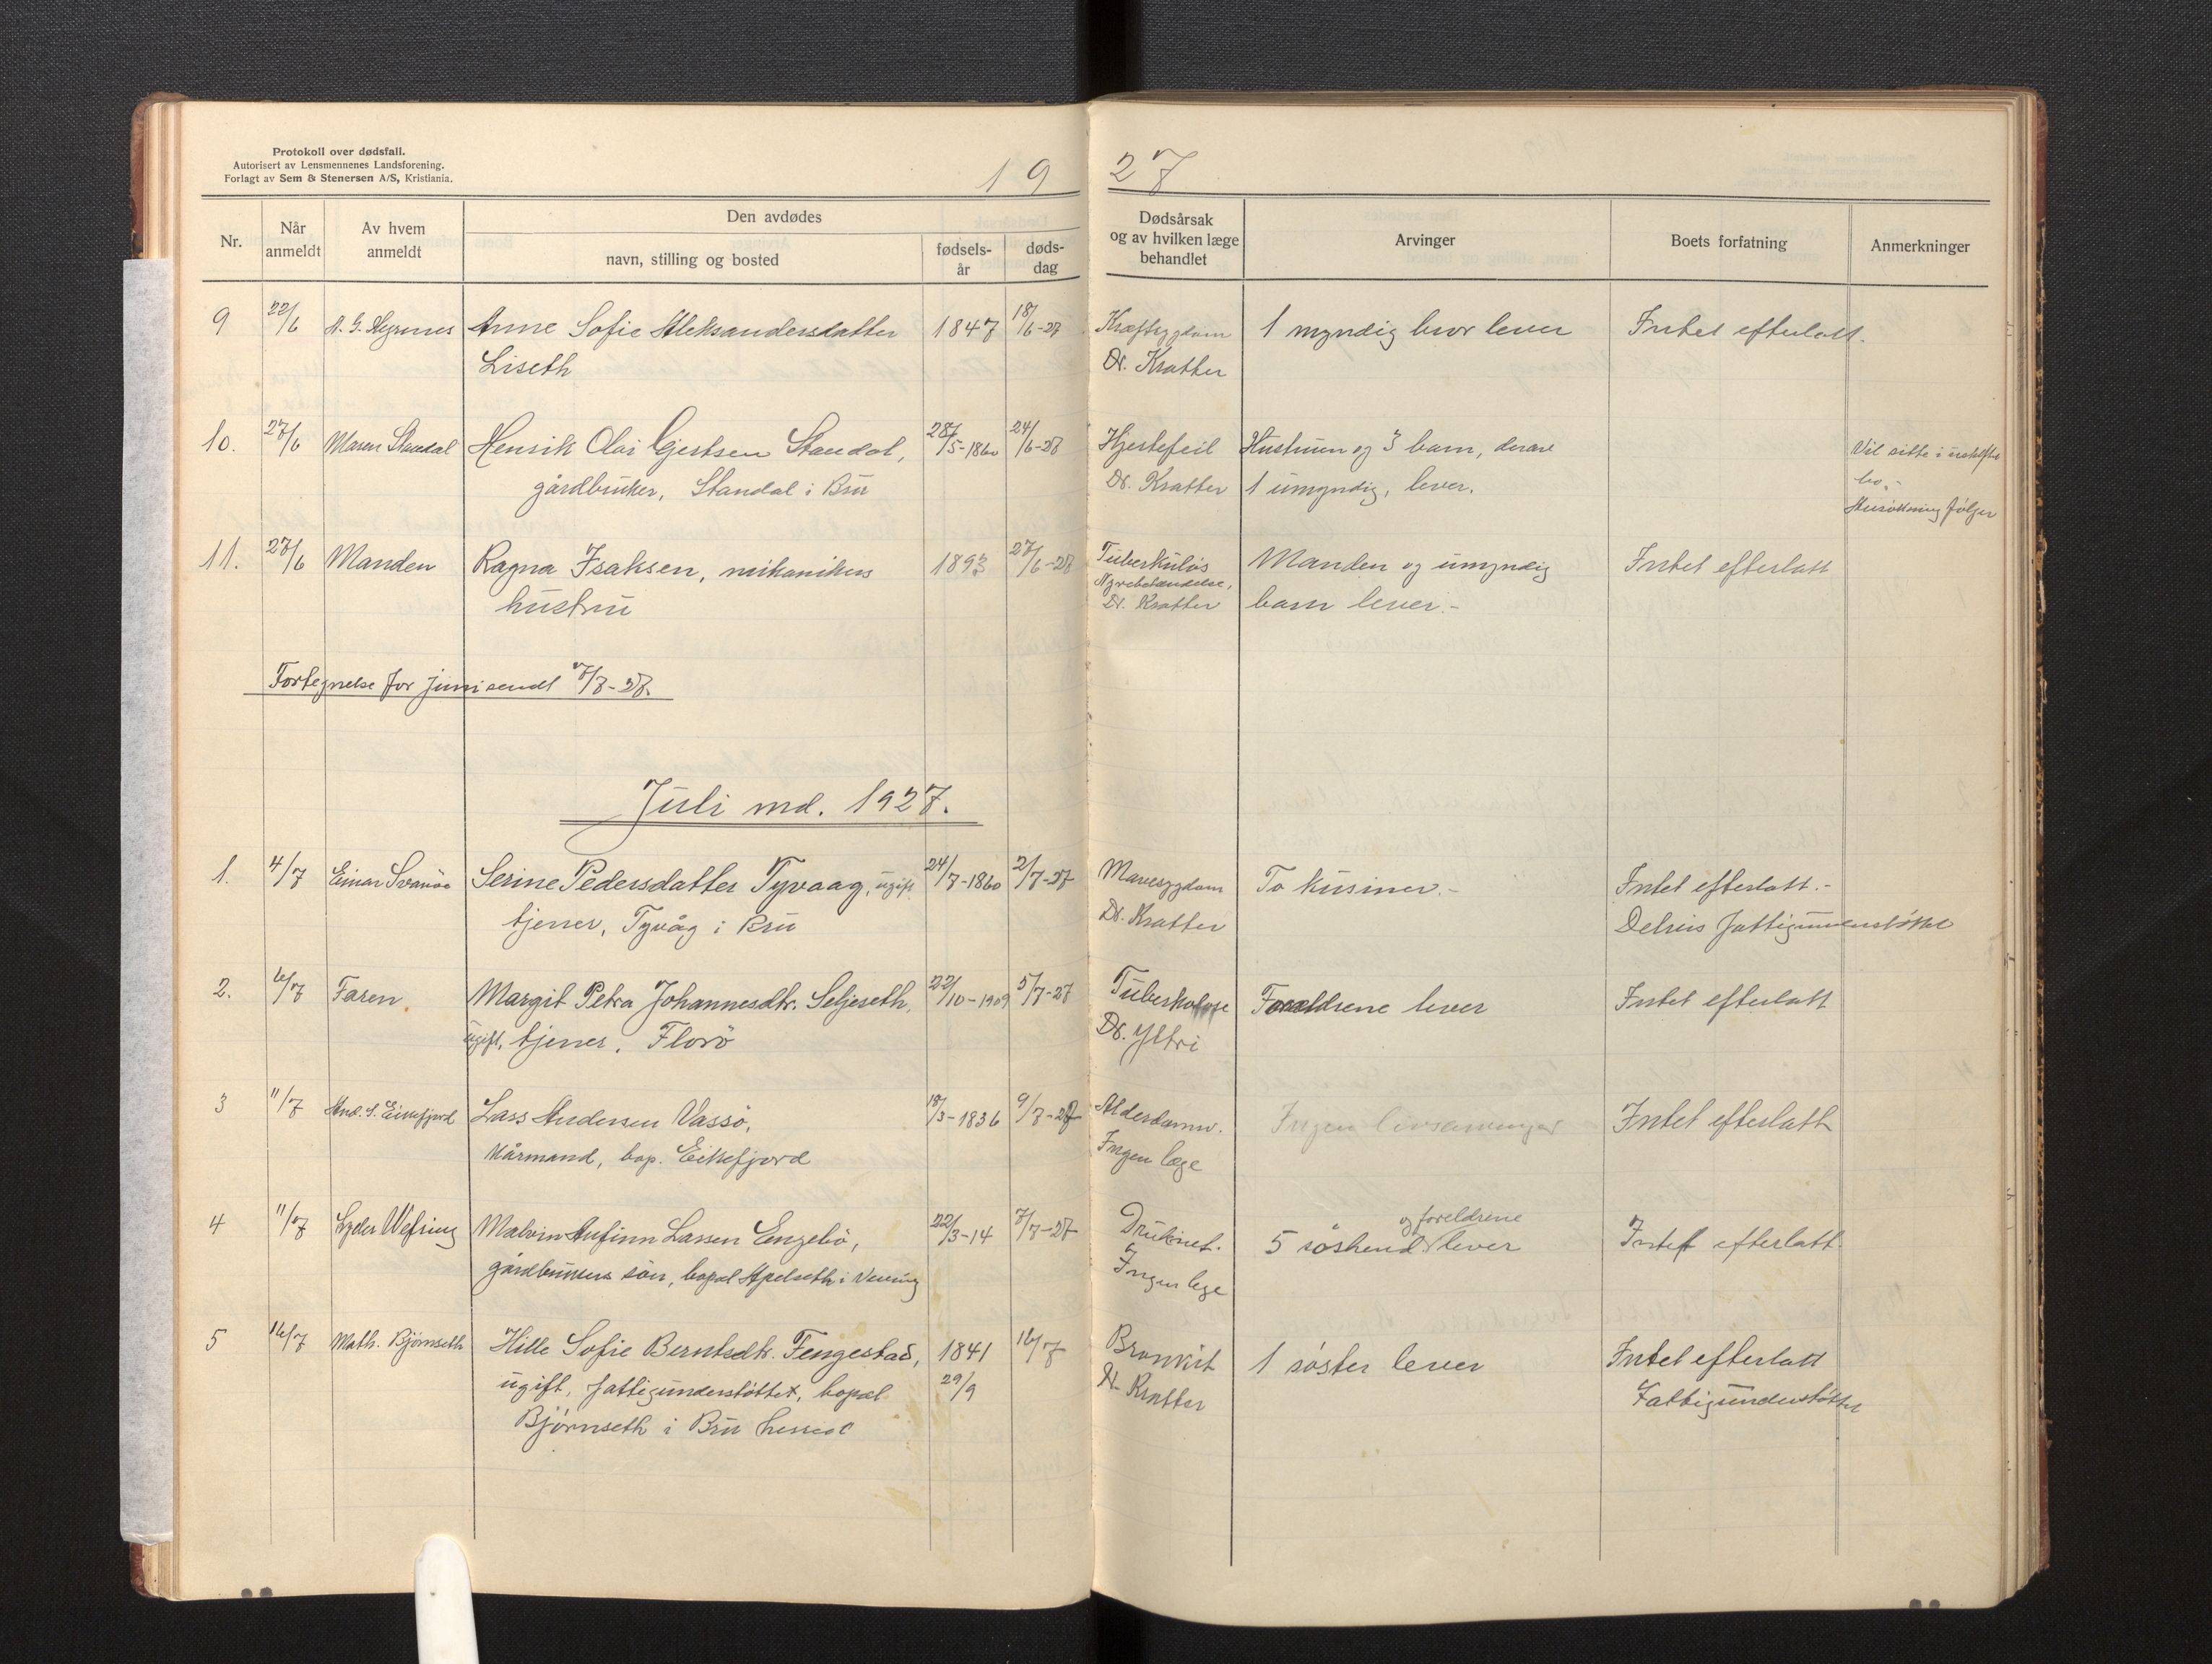 Protokoll over dødsfall.
Autorisert av Lensmennenes Landsforening.
Forlagt av Sem & Stenersen A/S, Kristiania.
19 27
Nr. Når anmeldt Av hvem anmeldt Den avdødes navn, stilling og bosted fødsels-år døds-dag Dødsårsak og av hvilken læge behandlet Arvinger Boets forfatning Anmerkninger
9 22/6 Anne Sofie Aleksandersdatter 1847 18/6-27 Kræftsygdom 1 myndig bror lever Intet efterlatt.
Liseth Dr. Kratter
10. 27/6 Maren Standal Henrik Olai Gjertsen Standal, 28/5-1860 24/6-27 Hjertefeil Hustruen og 3 barn, derav Vil sitte i uskiftet
gårdbruker, Standal i Bru Dr. Kratter 1 umyndig, lever. bo.-
følger
11. 27/6 Manden Ragna Isaksen, mekanikers 1893 27/6-27 Tuberkuløs Manden og umyndig Intet efterlatt
hustru Nyrebetændelse, Dr. Kratter barn lever.-
Fortegnelse for juni sendt 7/7-27.
Juli md. 1927.
1. 4/7 Einar Svanøe Serine Pedersdatter Tyvaag, ugift 24/7-1860 2/7-27 Mavesygdom To kusiner.- Intet efterlatt.-
tjener, Tyvåg i Bru Dr. Kratter Delvis fattigunderstøttet
2. 6/7 Faren Margit Petra Johannesdtr. Seljeseth, 22/10-1909 5/7-27 Tuberkulose Foreldrene lever Intet efterlatt
ugift, tjener, Florø Dr. Ytri
3 11/7 And. S. Eikefjord Lars Andersen Vassø, 18/3-1836 9/7-27 Alderdomsv. Ingen livsarvinger Intet efterlatt
Kårmand, bop. Eikefjord Ingen læge
4 11/7 Lyder Wefring Malvin Anfinn Larsen Engebø, 22/3-14 7/7-27 Druknet. 5 søskend og foreldrene lever Intet efterlatt
gårdbrukers søn, bopel i Vevring Ingen lege
5 16/7 Math. Bjørnseth Hille Sofie Berntsdtr. Fengestad, 1841 16/7 Bronkit 1 søster lever Intet efterlatt
ugift, fattigunderstøttet, bopel 29/9 Dr. Kratter Fattigunderstøttet
Bjørnseth i Bru herred